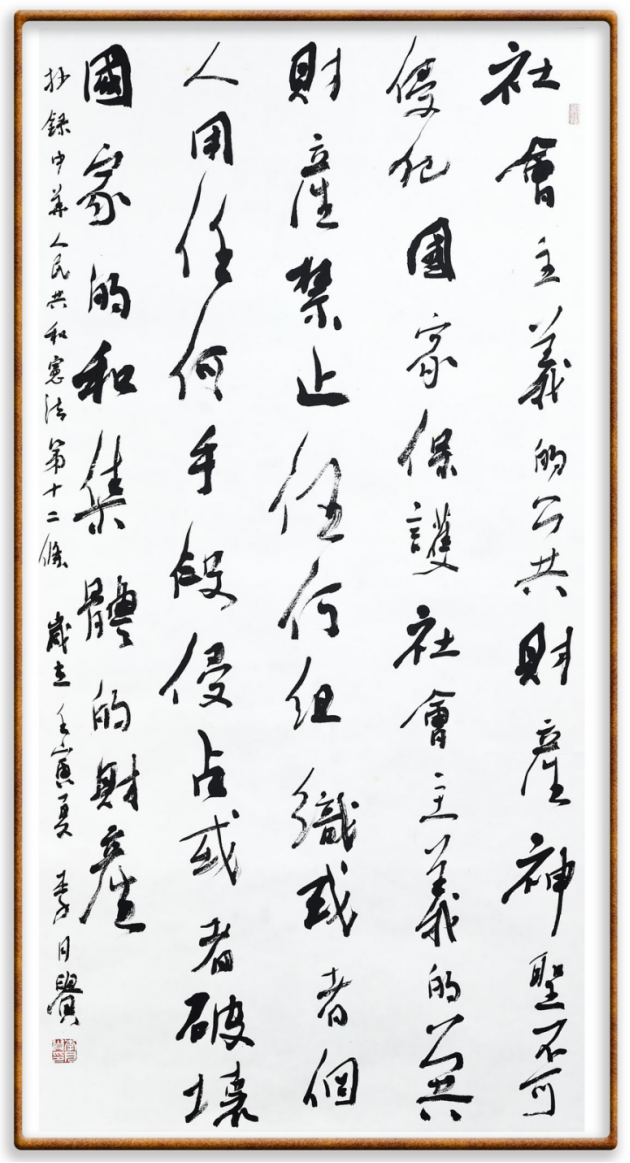 社會主義的公共財產神聖不可
侵犯國家保護社會主義的公共
財產禁止任何組織或者個
人用任何手段侵占或者破壞
國家的和集體的財產
抄錄中華人民共和憲法第十二條 歲在壬寅夏 李日